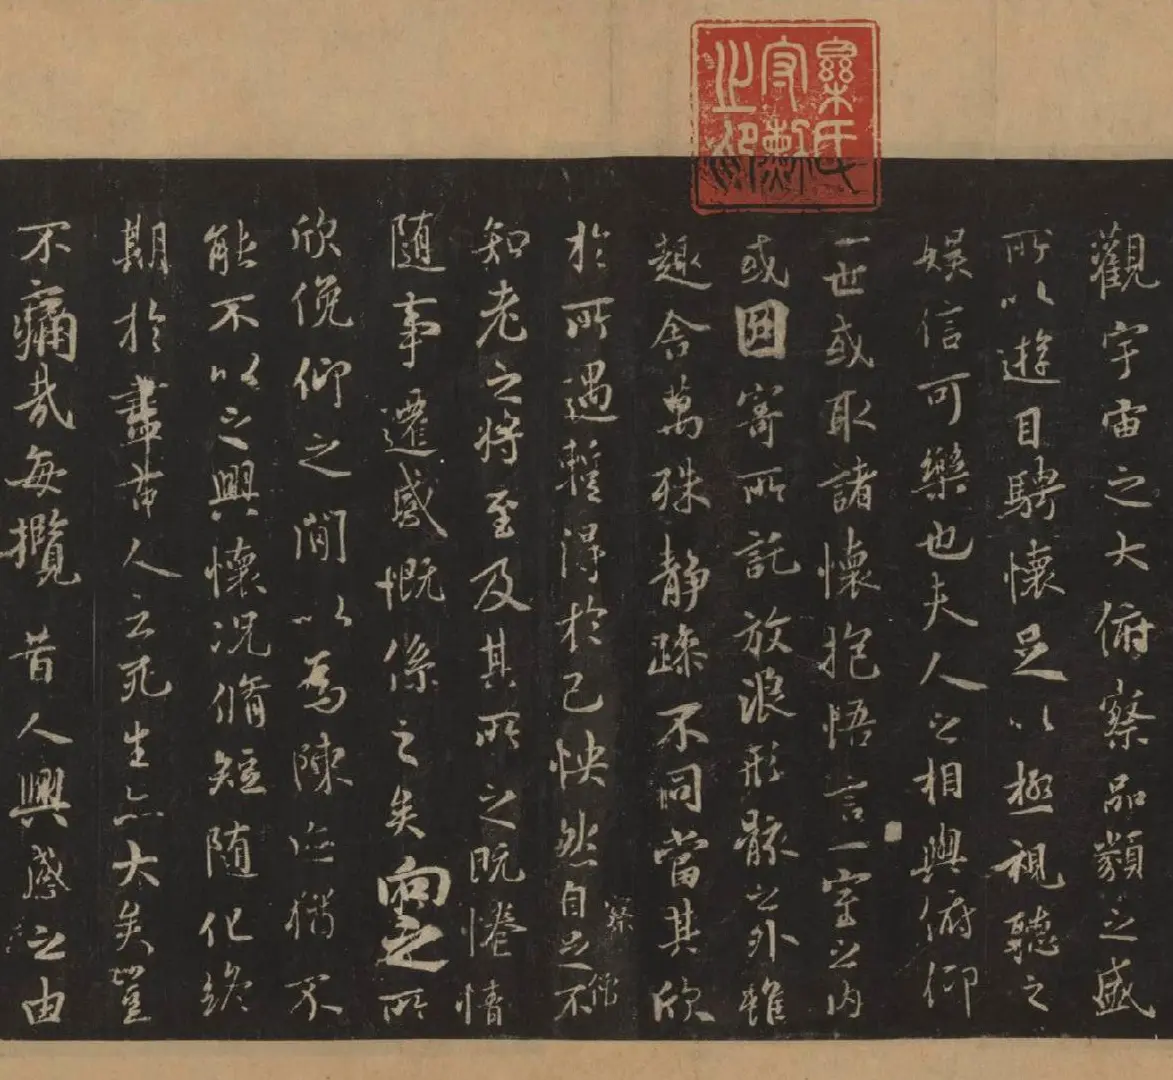 觀宇宙之大俯察品類之盛
所以遊目騁懷足以極視聽之
娛信可樂也夫人之相與俯仰
一世或取諸懷抱悟言一室之內
或因寄所託放浪形骸之外雖
趣舍萬殊静躁不同當其欣
察 僧
於所遇暫得於己怏然自足不
知老之將至及其所之既惓情
隨事遷感慨係之矣向之所
欣俛仰之閒以為陳迹猶不
能不以之興懷況脩短隨化終
期於盡古人云死生亦大矣豈
不痛哉每攬昔人興感之由